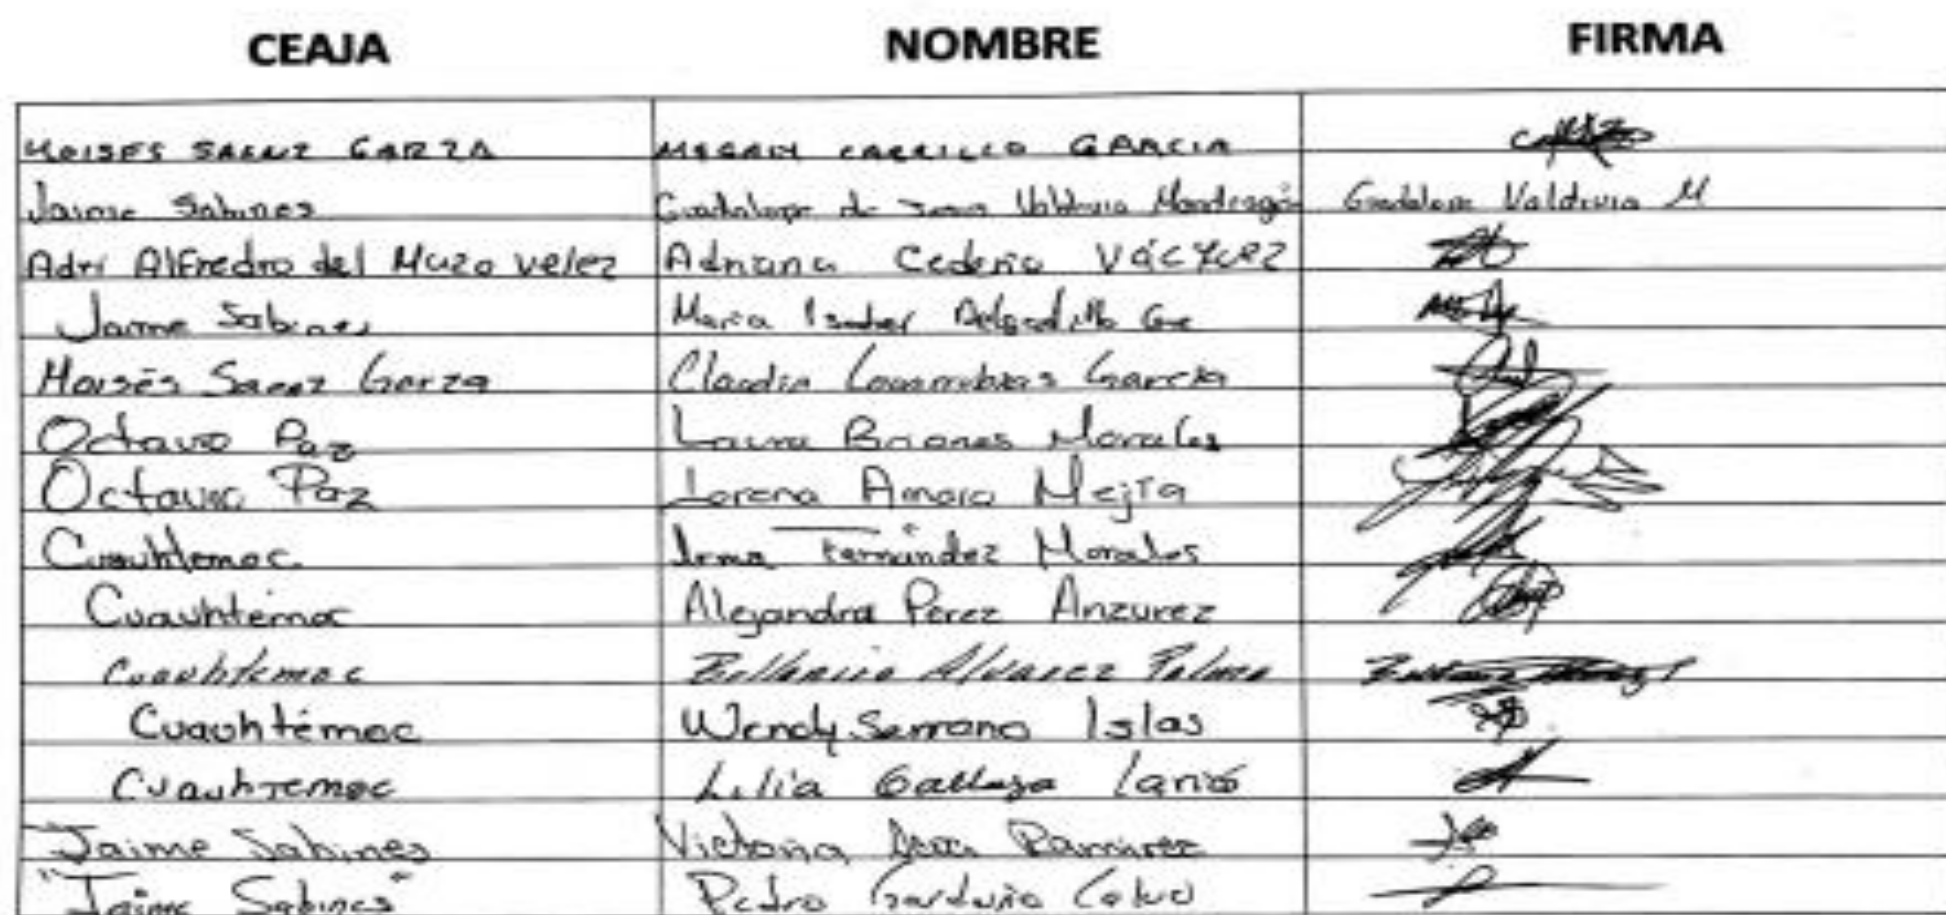 CEAJA NOMBRE FIRMA
MOISES SAENZ GARZA MAGALY CARRILLO GARCIA
Jaime Sabines Guadalupe de Jesus Valdivia Mondragón Guadalupe Valdivia M
Adri Alfredro del Mazo velez Adriana Cedeño
Jaime Sabines Maria Isabel Delgadillo
Moisés Saenz Garza Claudia Covarrubias Garcia
Octavio Paz Laura Briones Morales
Octavio Paz Lorena Amaro Mejía
Cuauhtemoc Irma Fernández Morales
Cuauhtémoc Alejandra Pérez Anzurez
Cuauhtemoc Alvarez Palma
Cuauhtémoc Wendy Serrano Islas
Cuauhtemoc Lilia
"Jaime Sabines Victoria Ramirez
"Jaime Sabines" Pedro Garduño